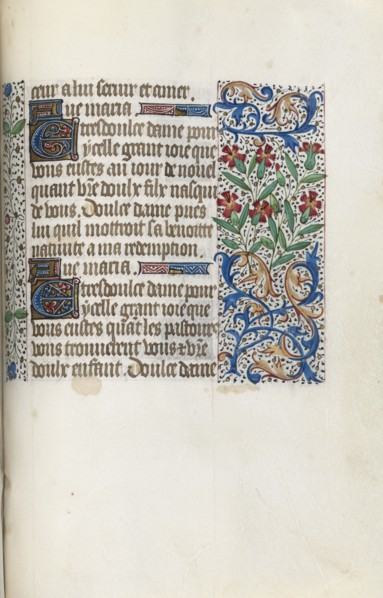 ceur a lui seruir et amer.
Aue maria
E tresdoulce dame pour
ycelle grant ioie que
vous eustes au iour de nouel
quant vr̃e doulx filz nasqui
de vous. Doulce dame pries
lui quil mottroit sa benoitte
natiuite a ma redemption.
Aue maria.
E tresdoulce dame pour
ycelle grant ioie que
vous eustes quãt les pastoure
vous trouuerent vous ⁊ vr̃e
doulx enfant. Doulce dame